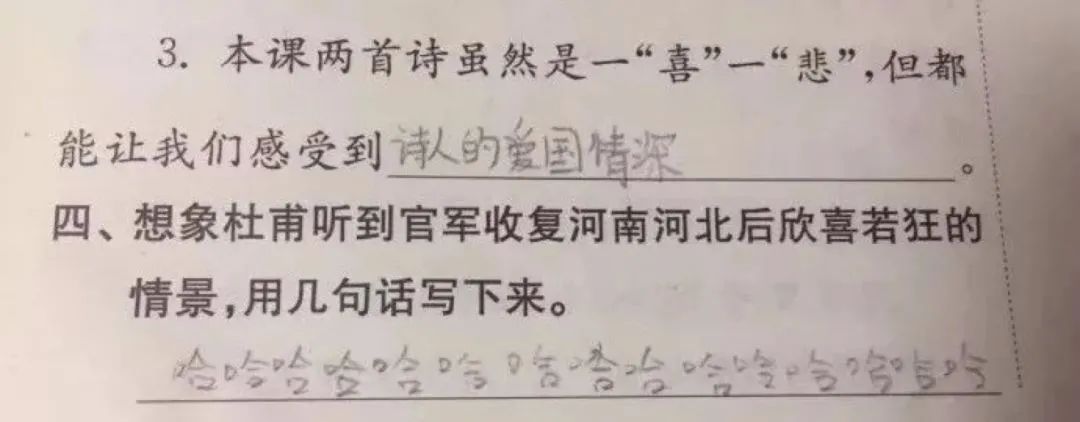 3. 本课两首诗虽然是一“喜”一“悲”,但都
能让我们感受到诗人的爱国情深。
四、想象杜甫听到官军收复河南河北后欣喜若狂的
情景,用几句话写下来。
哈哈哈哈哈哈哈哈哈哈哈哈哈哈哈